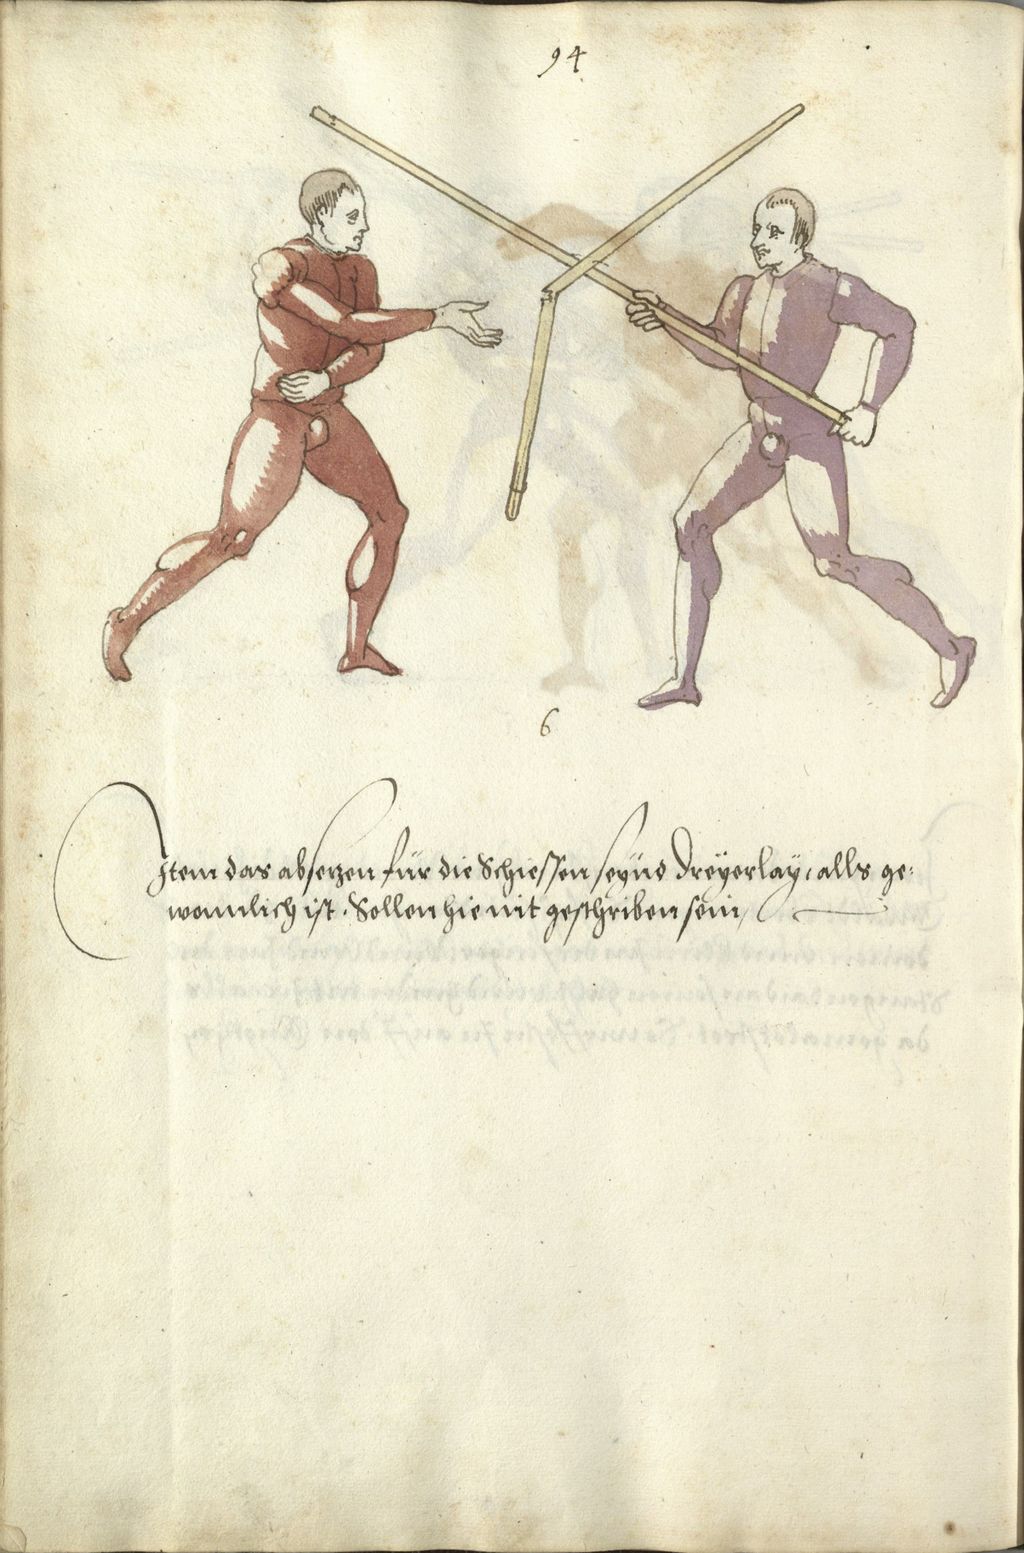 94
6
Item das absetzen für die Schiessen seynd dreyerlay, alls ge:
wonnlich ist. Sollen hie mit geschriben sein,